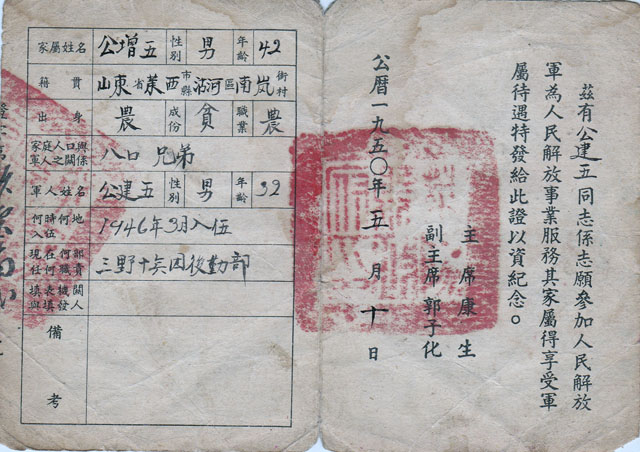 茲有公建五同志係志願參加人民解放
軍為人民解放事業服務其家屬得享受軍
屬待遇特發給此證以資紀念。
主席康生
副主席郭子化
公曆一九五〇年五月十日
家屬姓名 公增五 性別 男 年齡 42
籍貫 山東省莱西市縣沽河區南岚街村
出身 農 成份 貧 職業 農
家庭人口與
軍人之關係 八口 兄弟
軍人姓名 公建五 性別 男 年齡 32
何時何地
入伍 1946年3月入伍
現在何部
任何職責 三野十兵团後勤部
備考